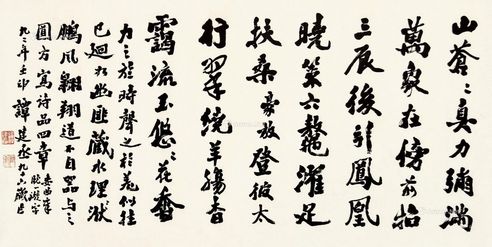 山蒼々真力彌滿
萬象在傍前招
三辰後引鳳凰
曉策六鰲濯足
扶桑豪放登彼太
行翠繞羊腸杳
靄流玉悠々花香
力之於時聲之於羌似往
已迴如幽匪藏水理洑
鵬風翱翔道不自器與之
圓方寫詩品四章委曲章脫一漩字
九二年壬申譚建丞九六歲